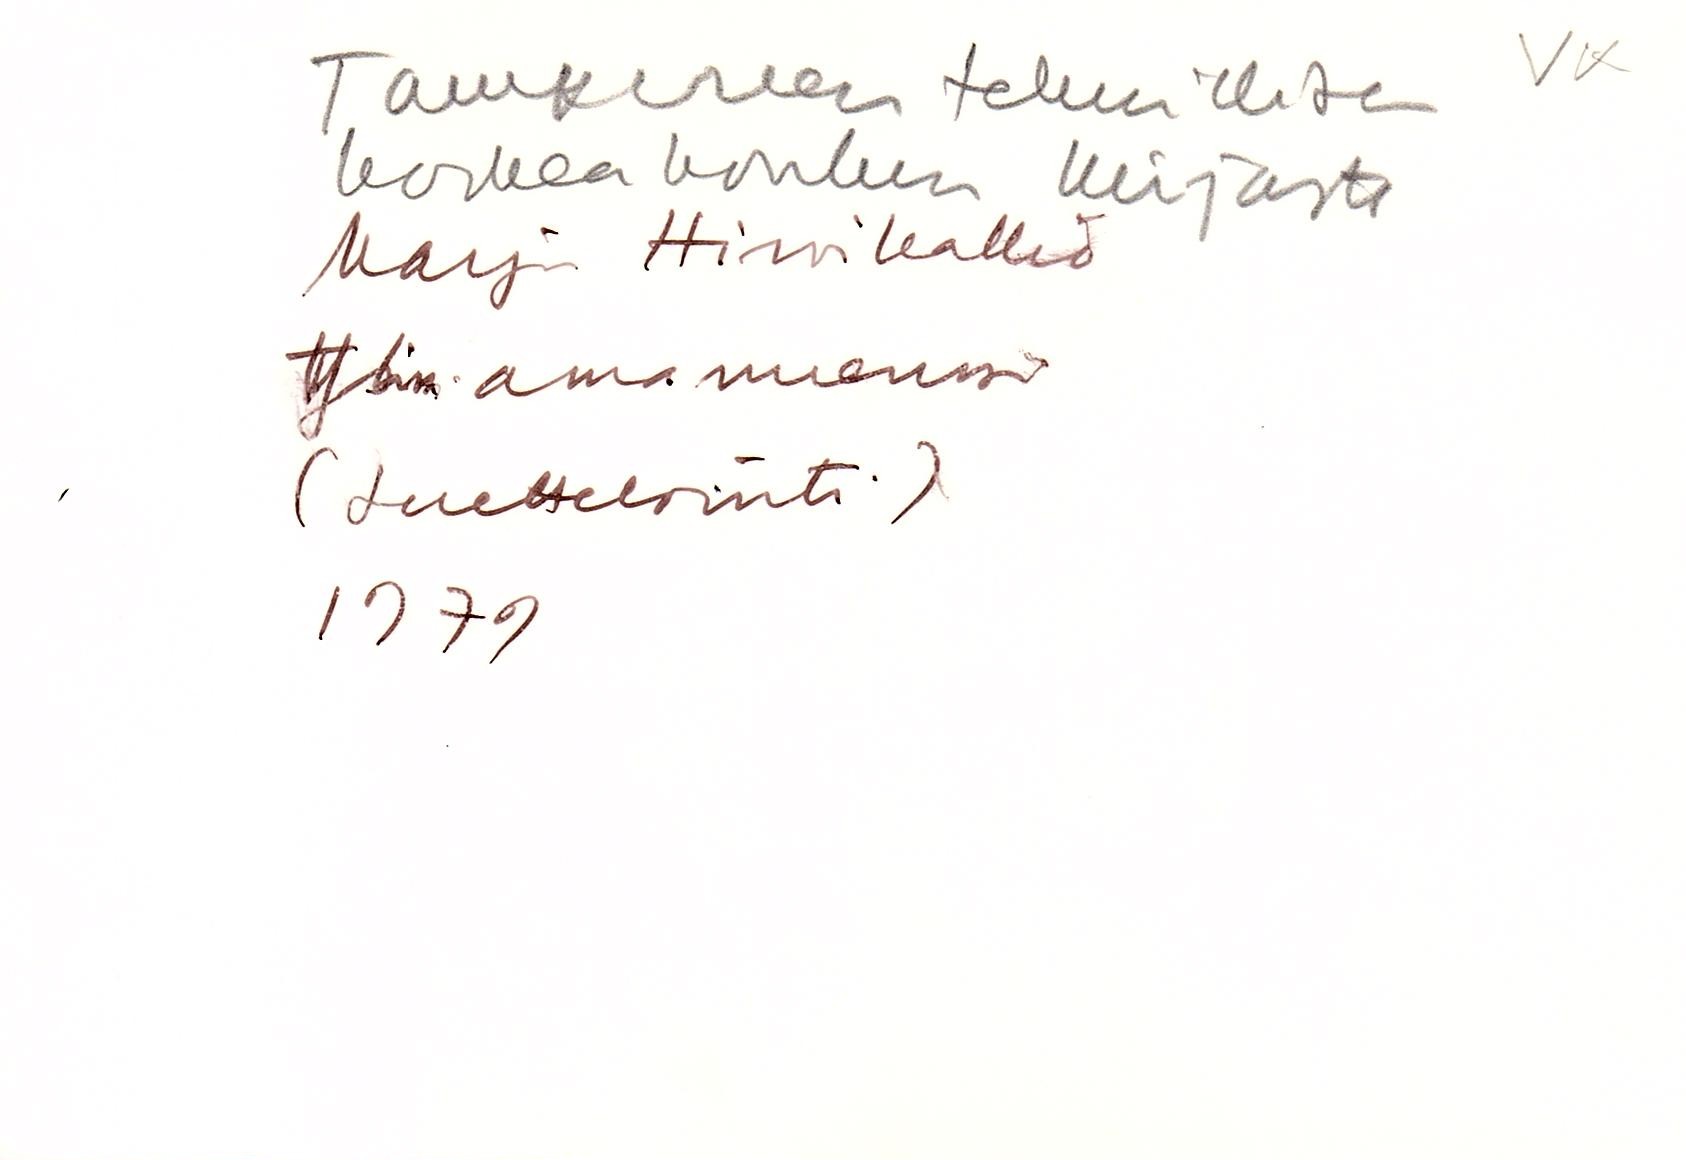 VK
Tampereen teknillisen
korkeakoulun kirjasto
Marja Hirvikallio
amanuenssi
(Luettelointi.)
1979